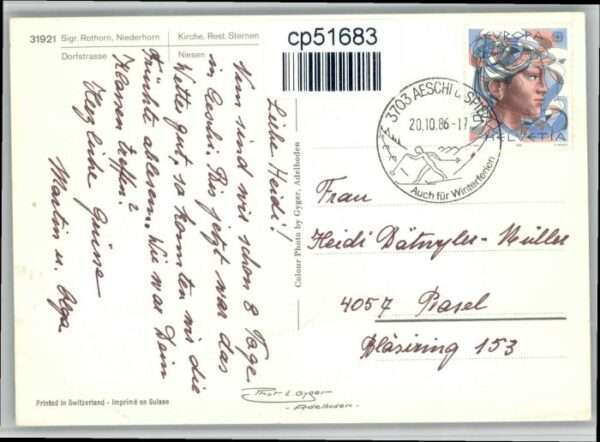 31921 Sigr. Rothorn, Niederhorn Kirche, Rest. Sternen
Dorfstrasse Niesen
cp51683
EUROPA
HELVETIA
3703 AESCHI b. SPIEZ
20.10.86-17
Auch für Winterferien
Liebe Heidi!
Nun sind wir schon 8 Tage
in Aeschi. Bis jetzt war das
Wetter gut, so konnten wir die
Früchte ablesen. Wie war Dein
Klassentreffen?
Herzliche Grüsse
Martin u. Olga
Colour Photo by Gyger, Adelboden
Frau
Heidi Dätwyler-Müller
4057 Basel
Bläsiring 153
Gyger
Adelboden
Printed in Switzerland - Imprimé en Suisse